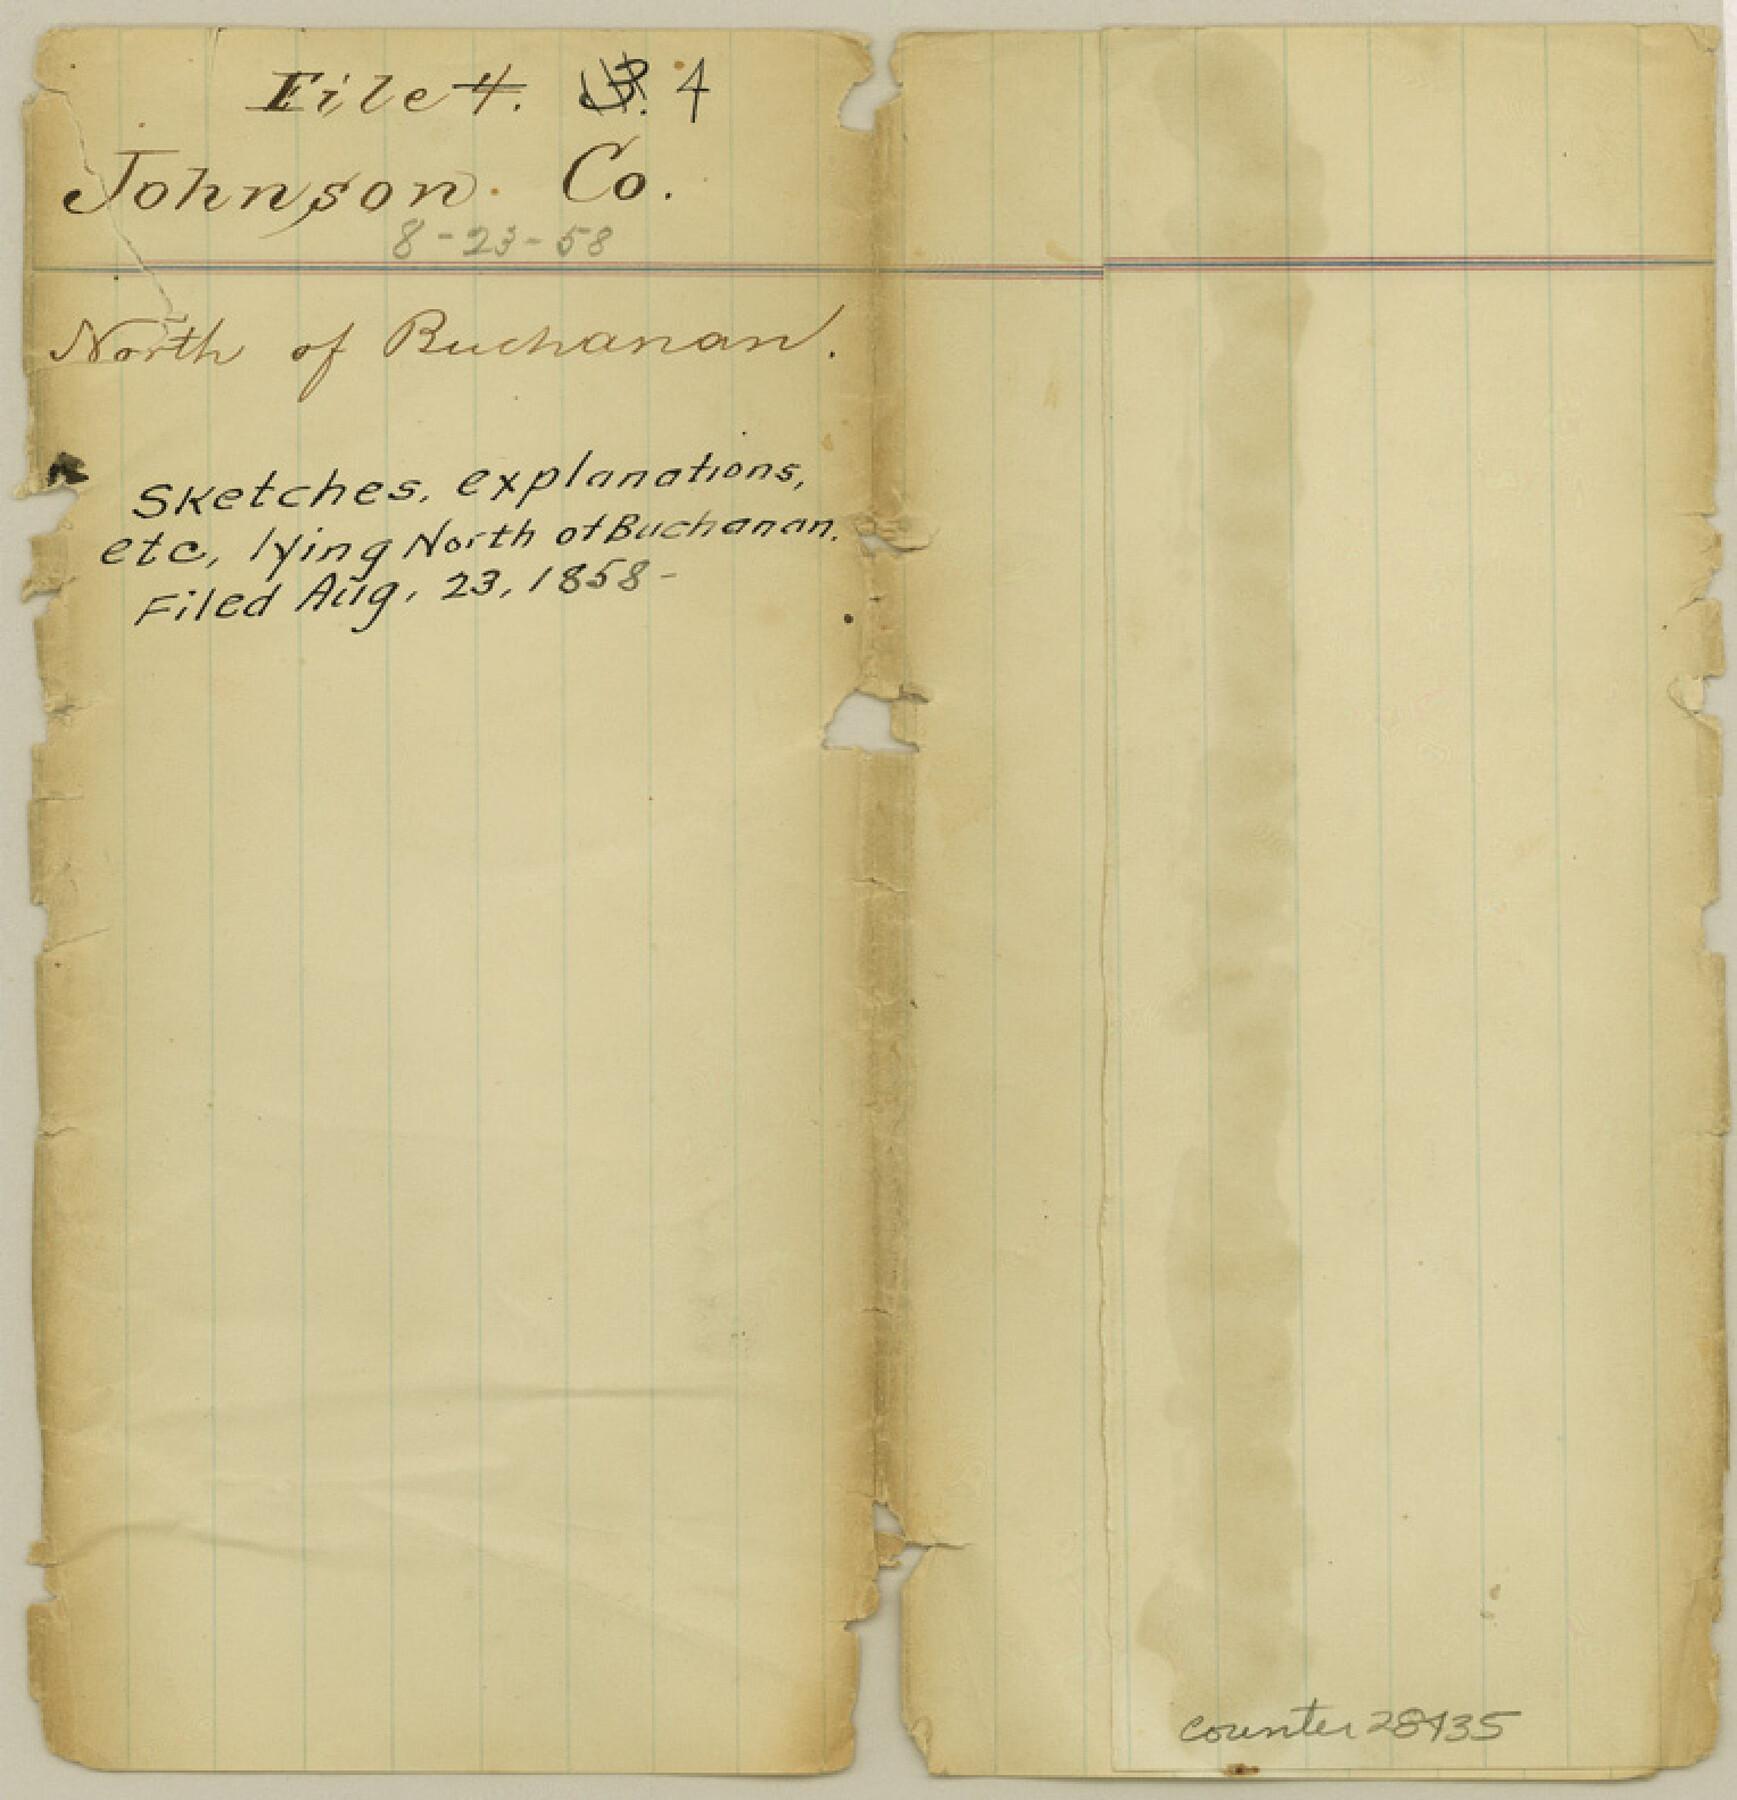 File 4. 4
Johnson Co.
8-23-58
North of Buchanan.
Sketches, explanations,
etc, lying North of Buchanan.
Filed Aug. 23, 1858-
counter 28435